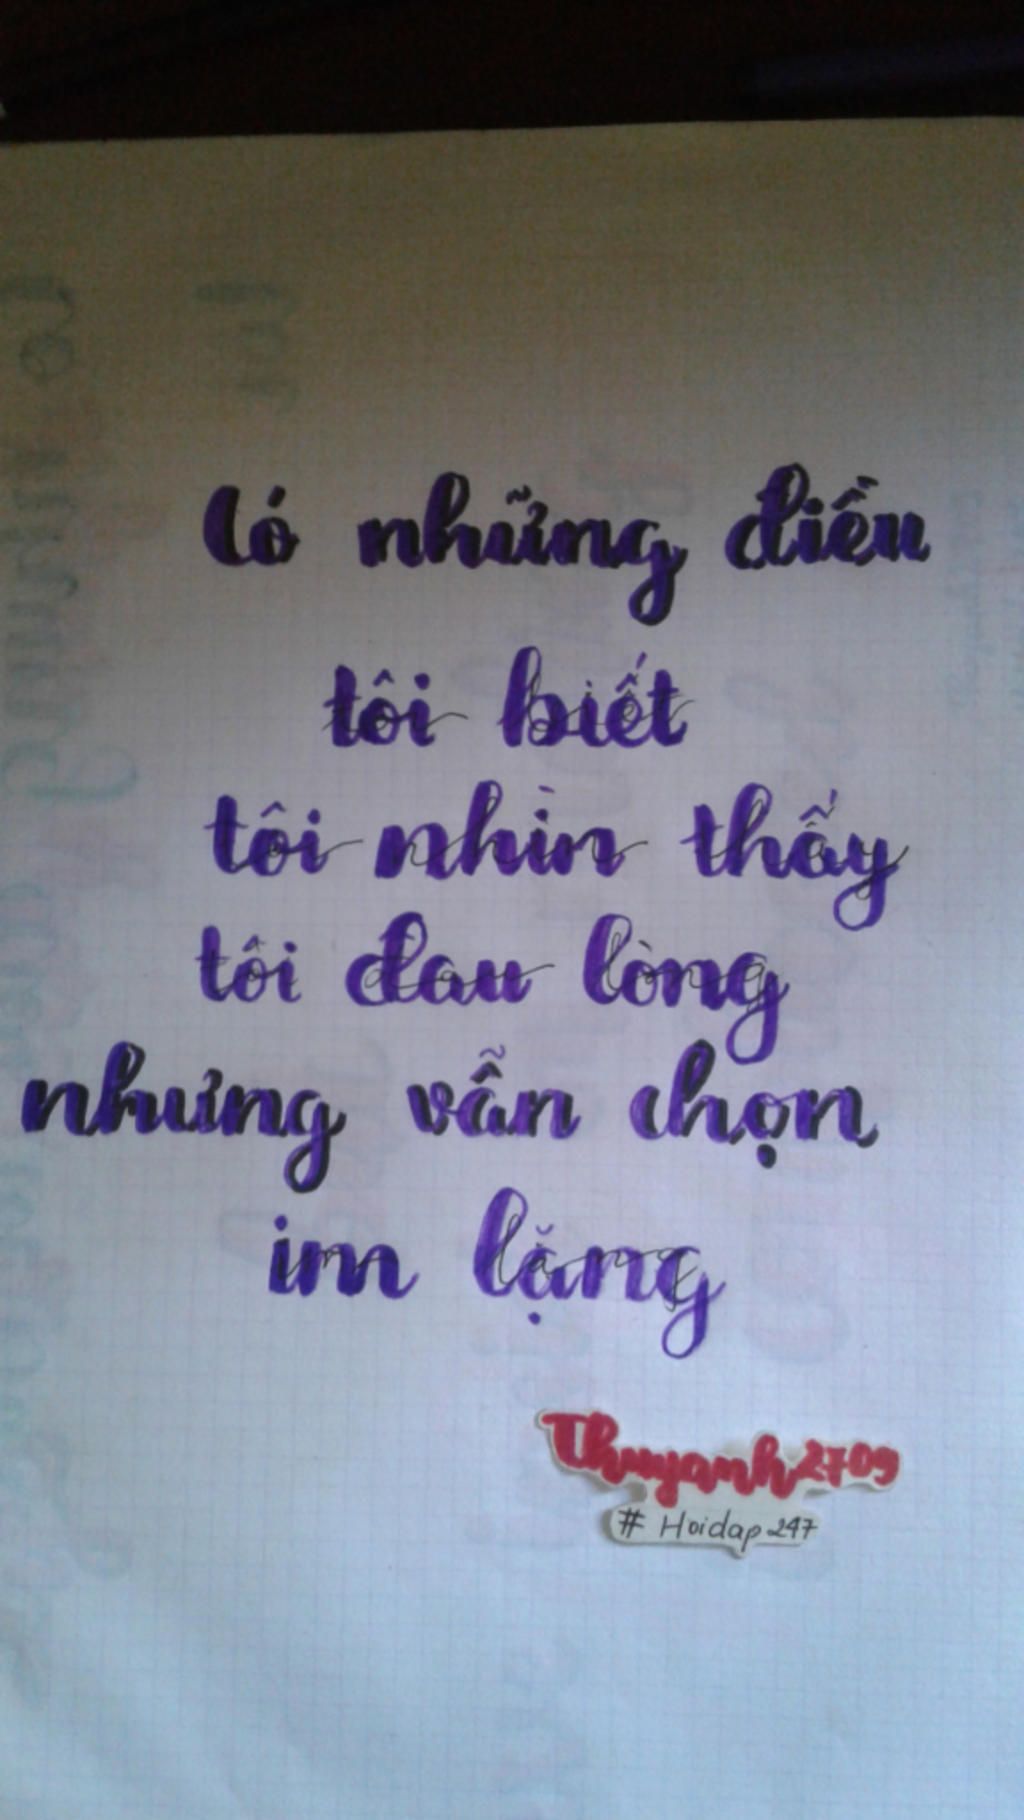 Có những điều
tôi biết
tôi nhìn thấy
tôi đau lòng
nhưng vẫn chọn
im lặng
Thuyanh2709
# Hoidap247